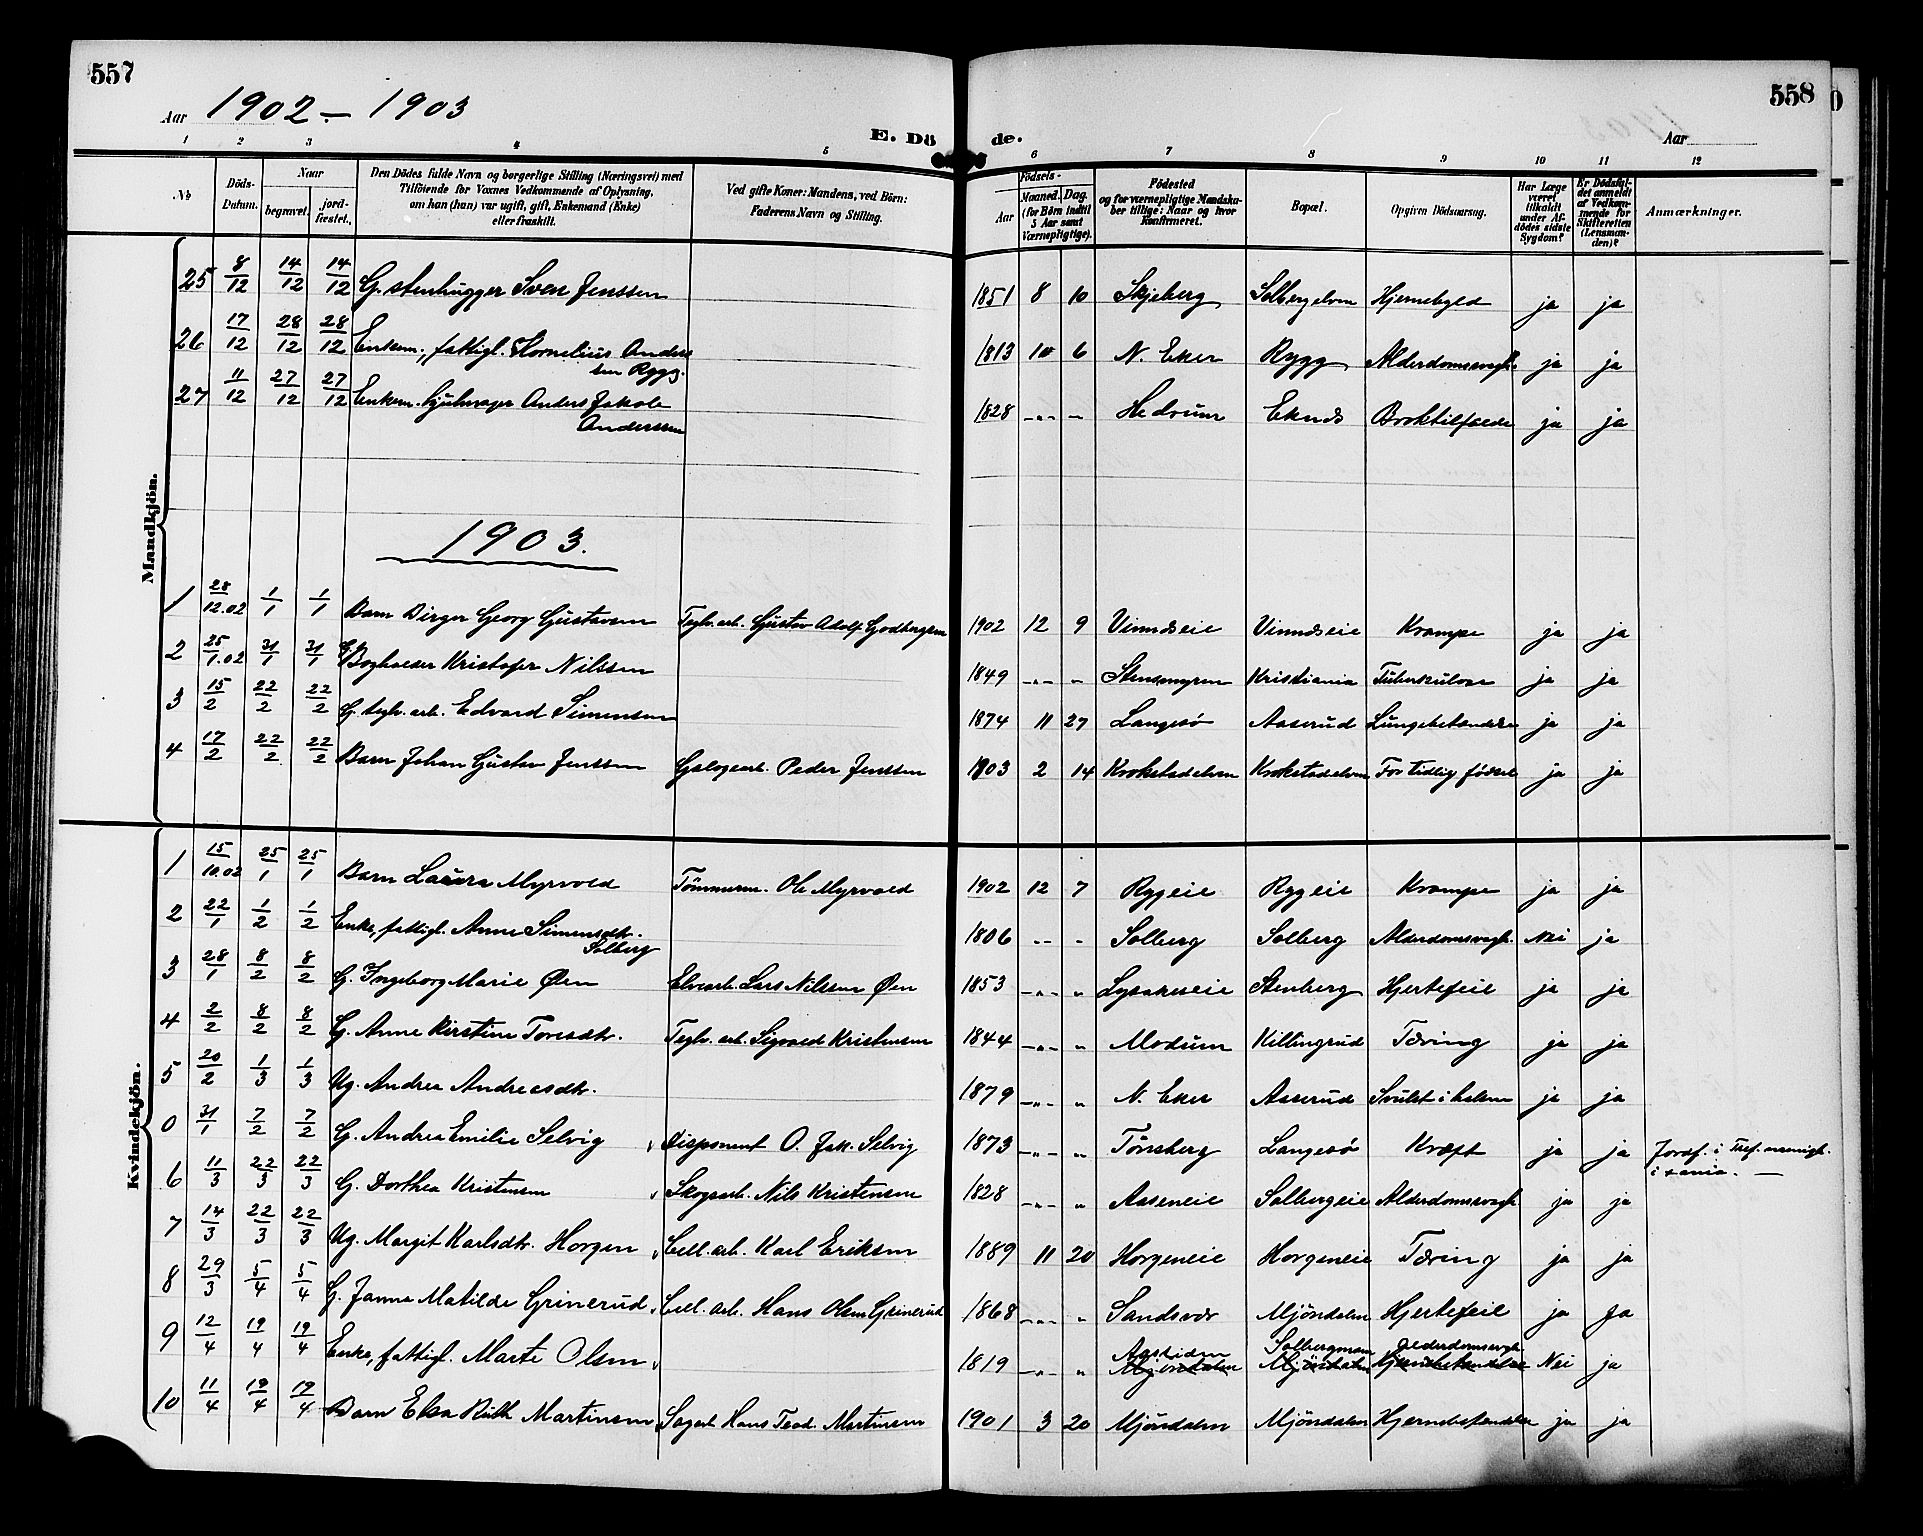 557
558
Aar 1902 – 1903
E. Dö de.
Aar
1 2 3 4 5 6 7 8 9 10 11 12
No
Döds-Datum.
Naar
begravet.
jord-fæstet.
Den Dødes fulde Navn og borgerlige Stilling (Næringsvei) med
Tilföiende for Voxnes Vedkommende af Oplysning,
om han (hun) var ugift, gift, Enkemand (Enke)
eller fraskilt.
Ved gifte Koner: Mandens, ved Börn:
Faderens Navn og Stilling.
Födsels-
Aar
Maaned. Dag.
(for Börn indtil
5 Aar samt
Værnepligtige).
Födested
og for værnepligtige Mandska-
ber tillige: Naar og hvor
konfirmeret.
Bopæl.
Opgiven Dödsaarsag.
Har Læge
været
tilkaldt
under Af-
dödes sidste
Sygdom?
Er Dödsfal-
det anmeldt
af Vedkom-
mende for
Skifteretten
(Lensman-
den)?
Anmærkninger.
Mandkjön.
25 8/12 14/12 14/12 G. stenhugger Sven Jenssen 1851 8 10 Skjeberg Solbergelven Hjernebyld ja ja
26 17/12 28/12 28/12 Enkem., fattigl. Kornelius Anders
sen Rygg. 1813 10 6 N. Eker Rygg Alderdomssvagh. ja ja
27 11/12 27/12 27/12 Enkem. hjulmager Anders Jakob
Anderssen 1828 -"- " Hedrum Eknes Broktilfælde ja ja
1903.
1 28/12.02 1/1 1/1 Barn Birger Georg Gustavsen Teglv. arb. Gustav Adolf 1902 12 9 Vinnæseie Vinnæseie Krampe ja ja
2 25/1.02 31/1 31/1 G. Bogholder Kristofer Nilssen 1849 -"- " Stensmyren Kristiania Tuberkulose ja ja
3 15/2 22/2 22/2 G. teglv. arb. Edvard Simensen 1874 11 27 Langesö Aaserud Lungebetændelse ja ja
4 17/2 22/2 22/2 Barn Johan Gustav Jenssen Peder Jenssen 1903 2 14 Krokstadelven Krokstadelven For tidlig födsel ja ja
Kvindekjön.
1 15/10.02 25/1 25/1 Barn Laura Myrvold Tömmerm. Ole Myrvold 1902 12 7 Ryggeie Ryggeie Krampe ja ja
2 22/1 1/2 1/2 Enke, fattigl. Anne Simensdtr.
Solberg 1806 -- " Solberg Solberg Alderdomssvagh. Nei ja
3 28/1 8/2 8/2 G. Ingeborg Marie Øen Elvearb. Lars Nilssen Øen 1853 -"- " Lysakereie Stenberg Hjertefeil ja ja
4 2/2 8/2 8/2 G. Anne Kirstine Toresdtr. Teglv. arb. Sigvald Kristensen 1844 -"- " Modum Killingrud Tæring ja ja
5 20/2 1/3 1/3 Ug. Andrea Andreasdtr. 1879 -"- " N. Eker Aaserud Svulst i halsen ja ja
0 31/1 7/2 7/2 G. Andrea Emilie Selvig Disponent O. Jak. Selvig 1873 -"- " Tönsberg Langesö Kræft ja ja Jordf. i Tref. menigh.
i xania. —
6 11/3 22/3 22/3 G. Dorthea Kristensen Skogsarb. Nils Kristensen 1828 -"- " Aaseneie Solbergeie Alderdomssvagh ja ja
7 14/3 22/3 22/3 Ug. Margit Karlsdtr. Horgen Cell. arb. Karl Eriksen 1889 11 20 Horgeneie Horgeneie Tæring ja ja
8 29/3 5/4 5/4 G. Janna Matilde Grinerud Cell. arb. Hans Olsen Grinerud 1868 -"- " Sandsvær Mjöndalen Hjertefeil ja ja
9 12/4 19/4 19/4 Enke, fattigl. Marte Olsen 1819 -"- " Mjöndalen Solbergmoen Mjöndalen Alderdomssvagh Hjernebetændelse Nei ja
10 11/4 19/4 19/4 Barn Elsa Ruth Martinsen Sagarb. Hans Teod. Martinsen 1901 3 20 Mjöndalen Mjöndalen Hjernebetændelse ja ja